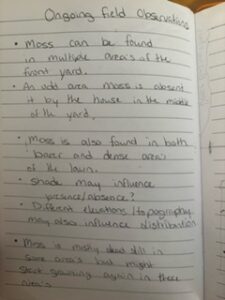 Ongoing field Observations
• Moss can be found
in multiple area's of the
front yard.
• An odd area moss is absent
it by the house in the middle
of th yard,
• Moss is also found in both
barer and dense area's
of the lawn.
• shade may influence
presence/absence?
• Different elevations /topography
may also influence distribution
• Moss is mostly dead still in
some area's but might
start growing again in these
area's